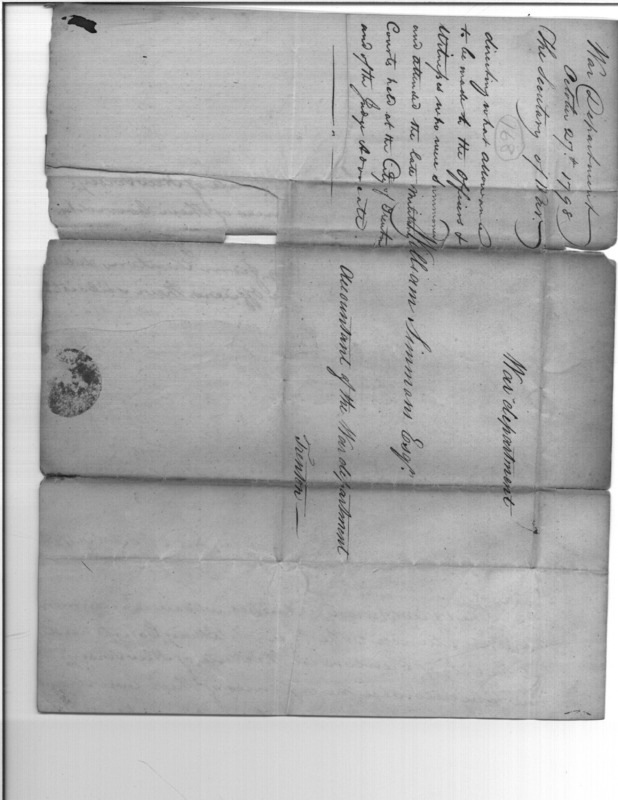 War Department
October 27th 1798
The Secretary of War.
168
directing what allowance
to be made to the Officers &
Witnesses who were Summoned
and attended the late Military
Courts held at the City of Trenton
and of the Judge Advocate.
War department
William Simmons Esqr.
Accountant of the War department
Trenton